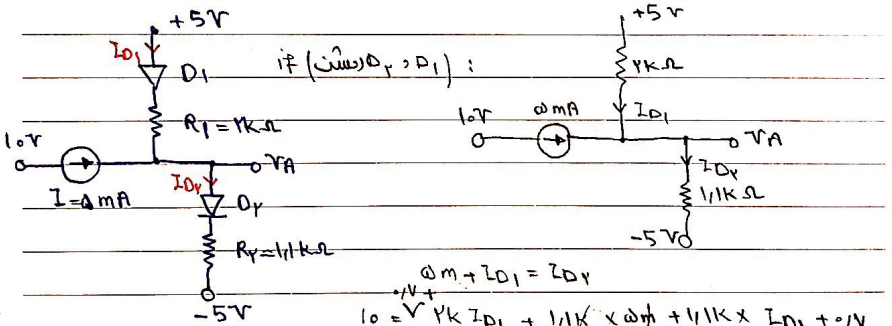 +5V
I_D1
D1
R1=۲kΩ
10V
I=۵mA
VA
I_D۲
D۲
R۲=۱,۱kΩ
-5V
if (D۱ و D۲ روشن) :
+5V
۲kΩ
I_D1
10V
۵mA
VA
I_D۲
۱,۱kΩ
-5V
۵m + I_D1 = I_D۲
۰,۷ +
۱۰ = ۲k I_D1 + ۱,۱k × ۵m + ۱,۱k × I_D1 + ۰,۷